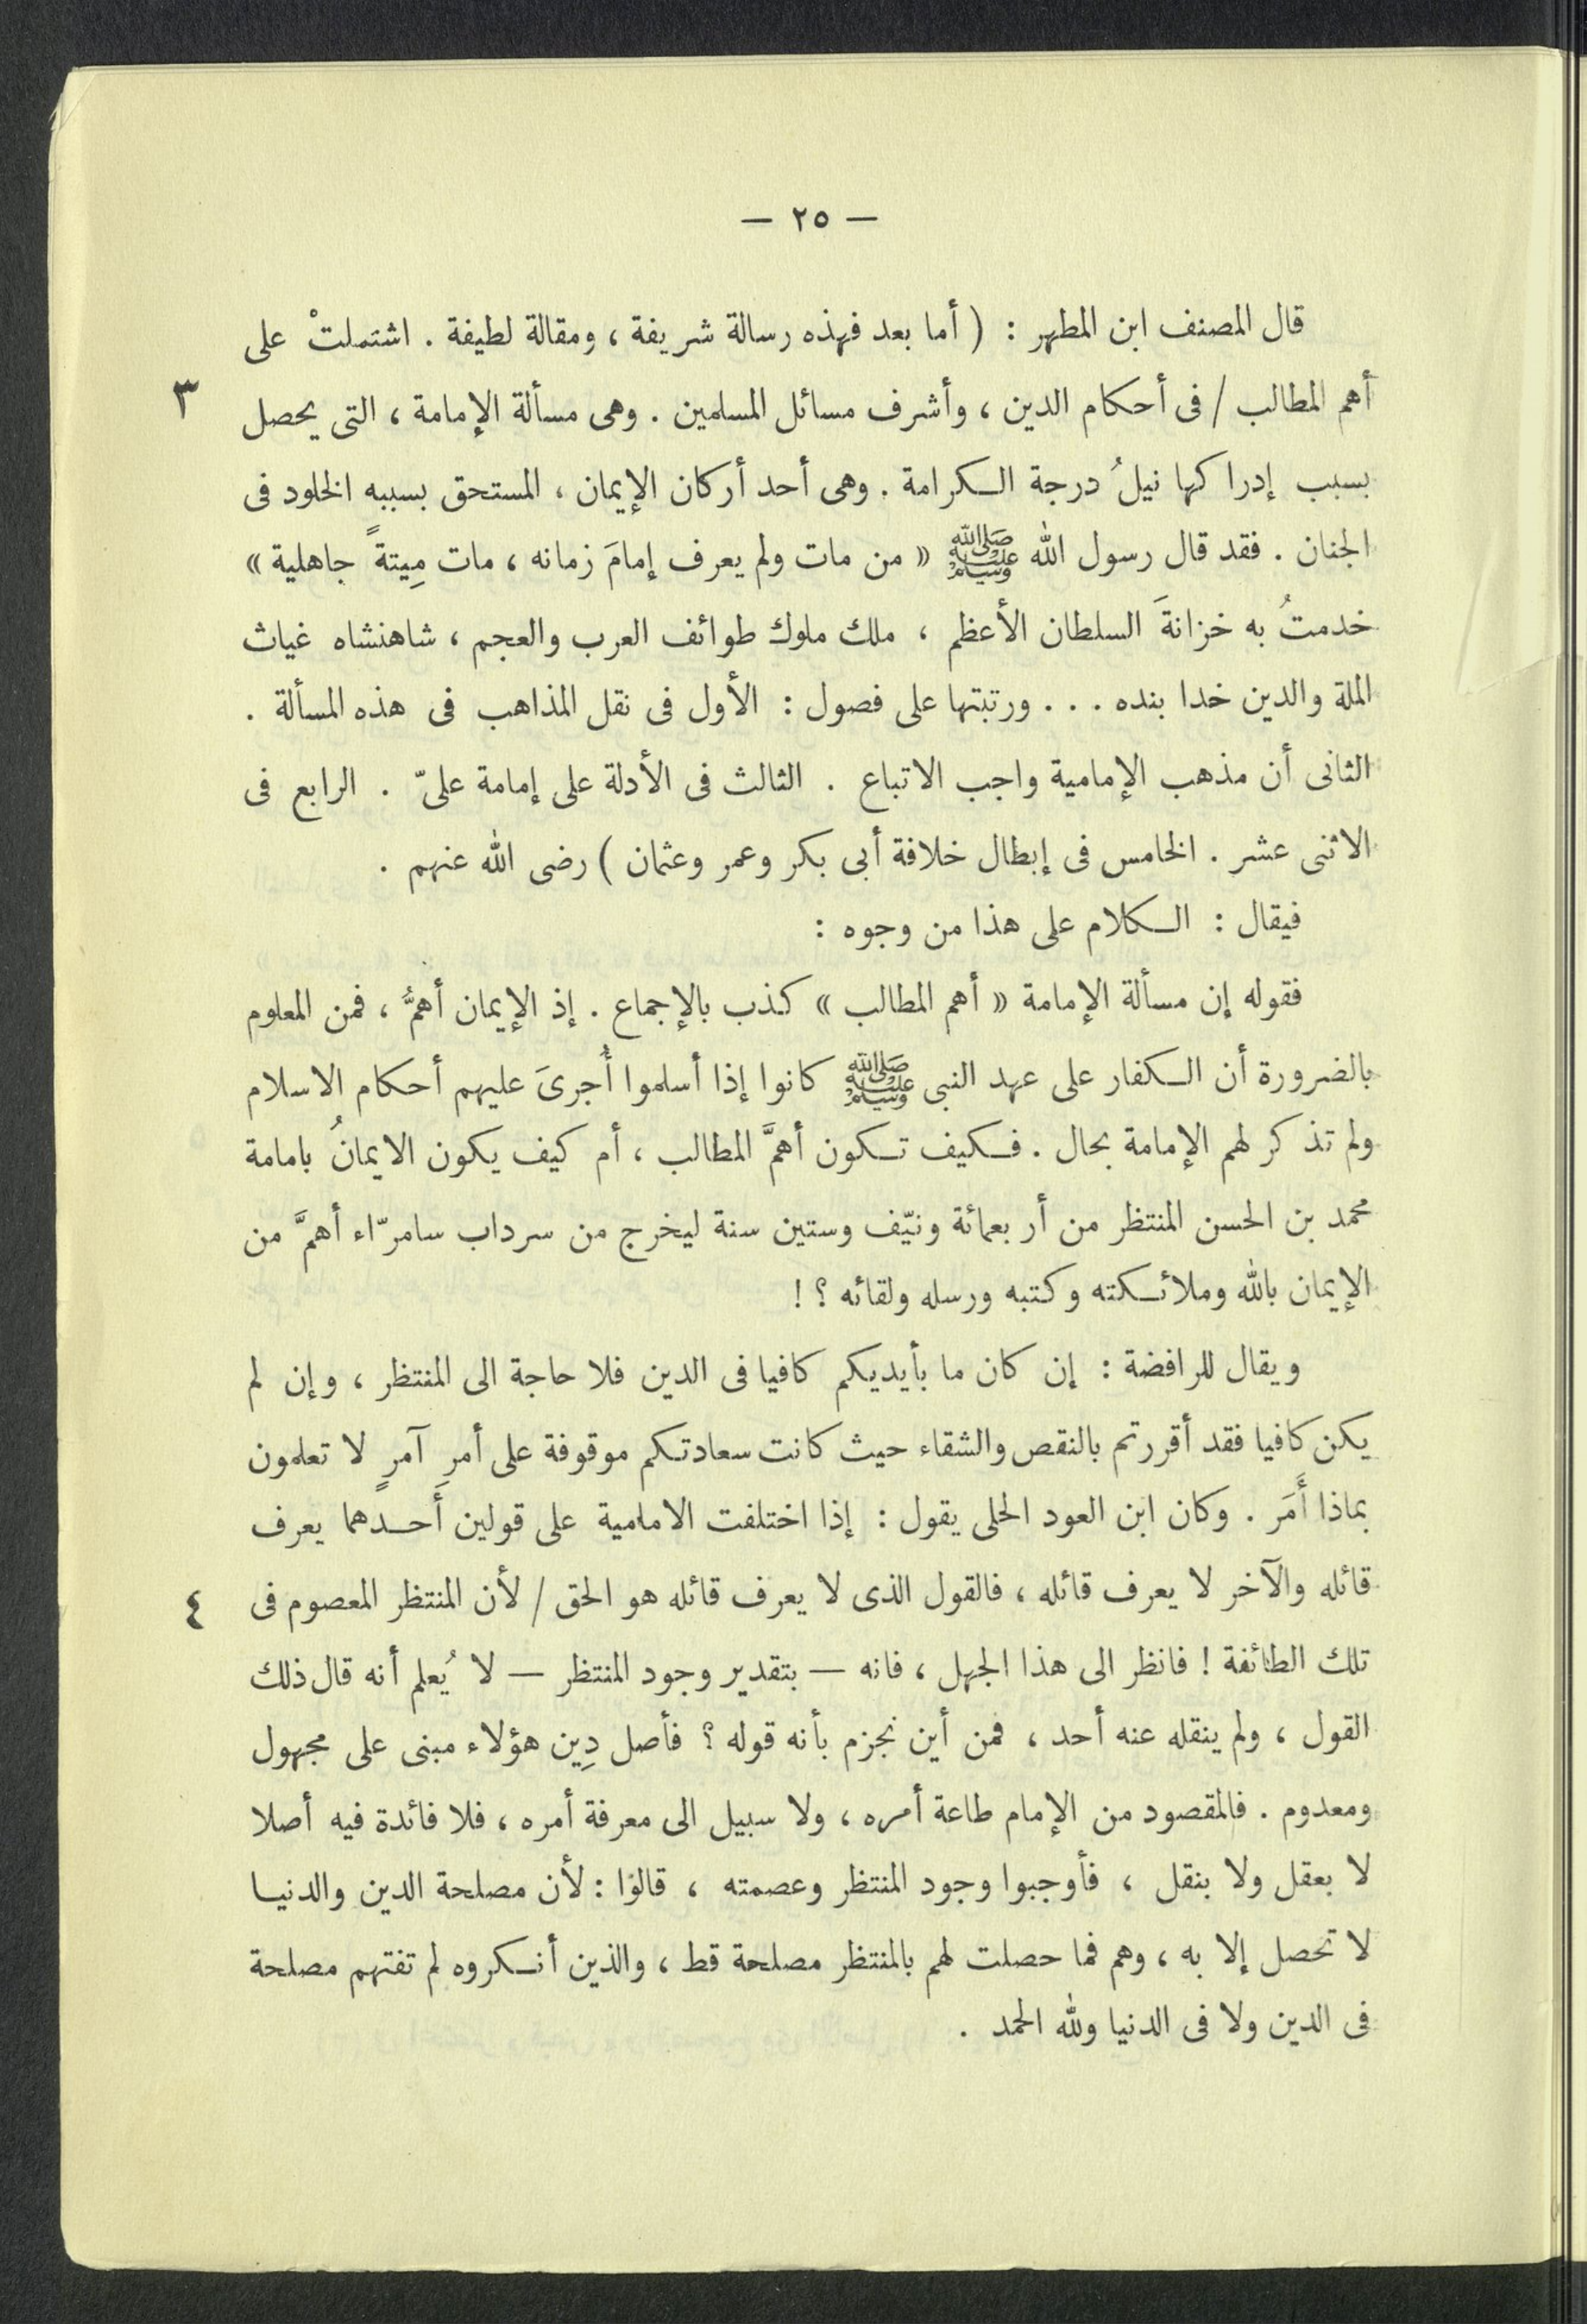 — ٢٥ —
قال المصنف ابن المطهر : ( أما بعد فهذه رسالة شريفة ، ومقالة لطيفة . اشتملتْ على
أهم المطالب / فى أحكام الدين ، وأشرف مسائل المسلمين . وهى مسألة الإمامة ، التى يحصل ٣
بسبب إدراكها نيلُ درجة الكرامة . وهى أحد أركان الإيمان ، المستحق بسببه الخلود فى
الجنان . فقد قال رسول الله ﷺ « من مات ولم يعرف إمامَ زمانه ، مات مِيتةً جاهلية »
خدمتُ به خزانةَ السلطان الأعظم ، ملك ملوك طوائف العرب والعجم ، شاهنشاه غياث
الملة والدين خدا بنده . . . ورتبتها على فصول : الأول فى نقل المذاهب فى هذه المسألة .
الثانى أن مذهب الإمامية واجب الاتباع . الثالث فى الأدلة على إمامة علىّ . الرابع فى
الاثنى عشر . الخامس فى إبطال خلافة أبى بكر وعمر وعثمان ) رضى الله عنهم .
فيقال : الكلام على هذا من وجوه :
فقوله إن مسألة الإمامة « أهم المطالب » كذب بالإجماع . إذ الإيمان أهمُّ ، فمن المعلوم
بالضرورة أن الكفار على عهد النبى ﷺ كانوا إذا أسلموا أُجرىَ عليهم أحكام الاسلام
ولم تذكر لهم الإمامة بحال . فكيف تكون أهمَّ المطالب ، أم كيف يكون الايمانُ بامامة
محمد بن الحسن المنتظر من أربعمائة ونيّف وستين سنة ليخرج من سرداب سامرّاء أهمَّ من
الإيمان بالله وملائكته وكتبه ورسله ولقائه ؟ !
ويقال للرافضة : إن كان ما بأيديكم كافيا فى الدين فلا حاجة الى المنتظر ، وإن لم
يكن كافيا فقد أقررتم بالنقص والشقاء حيث كانت سعادتكم موقوفة على أمرِ آمرٍ لا تعلمون
بماذا أَمَر . وكان ابن العود الحلى يقول : إذا اختلفت الامامية على قولين أَحدهما يعرف
قائله والآخر لا يعرف قائله ، فالقول الذى لا يعرف قائله هو الحق / لأن المنتظر المعصوم فى ٤
تلك الطائفة ! فانظر الى هذا الجهل ، فانه — بتقدير وجود المنتظر — لا يُعلم أنه قال ذلك
القول ، ولم ينقله عنه أحد ، فمن أين نجزم بأنه قوله ؟ فأصل دِين هؤلاء مبنى على مجهول
ومعدوم . فالمقصود من الإمام طاعة أمره ، ولا سبيل الى معرفة أمره ، فلا فائدة فيه أصلا
لا بعقل ولا بنقل ، فأوجبوا وجود المنتظر وعصمته ، قالوا : لأن مصلحة الدين والدنيا
لا تحصل إلا به ، وهم فما حصلت لهم بالمنتظر مصلحة قط ، والذين أنكروه لم تفتهم مصلحة
فى الدين ولا فى الدنيا ولله الحمد .